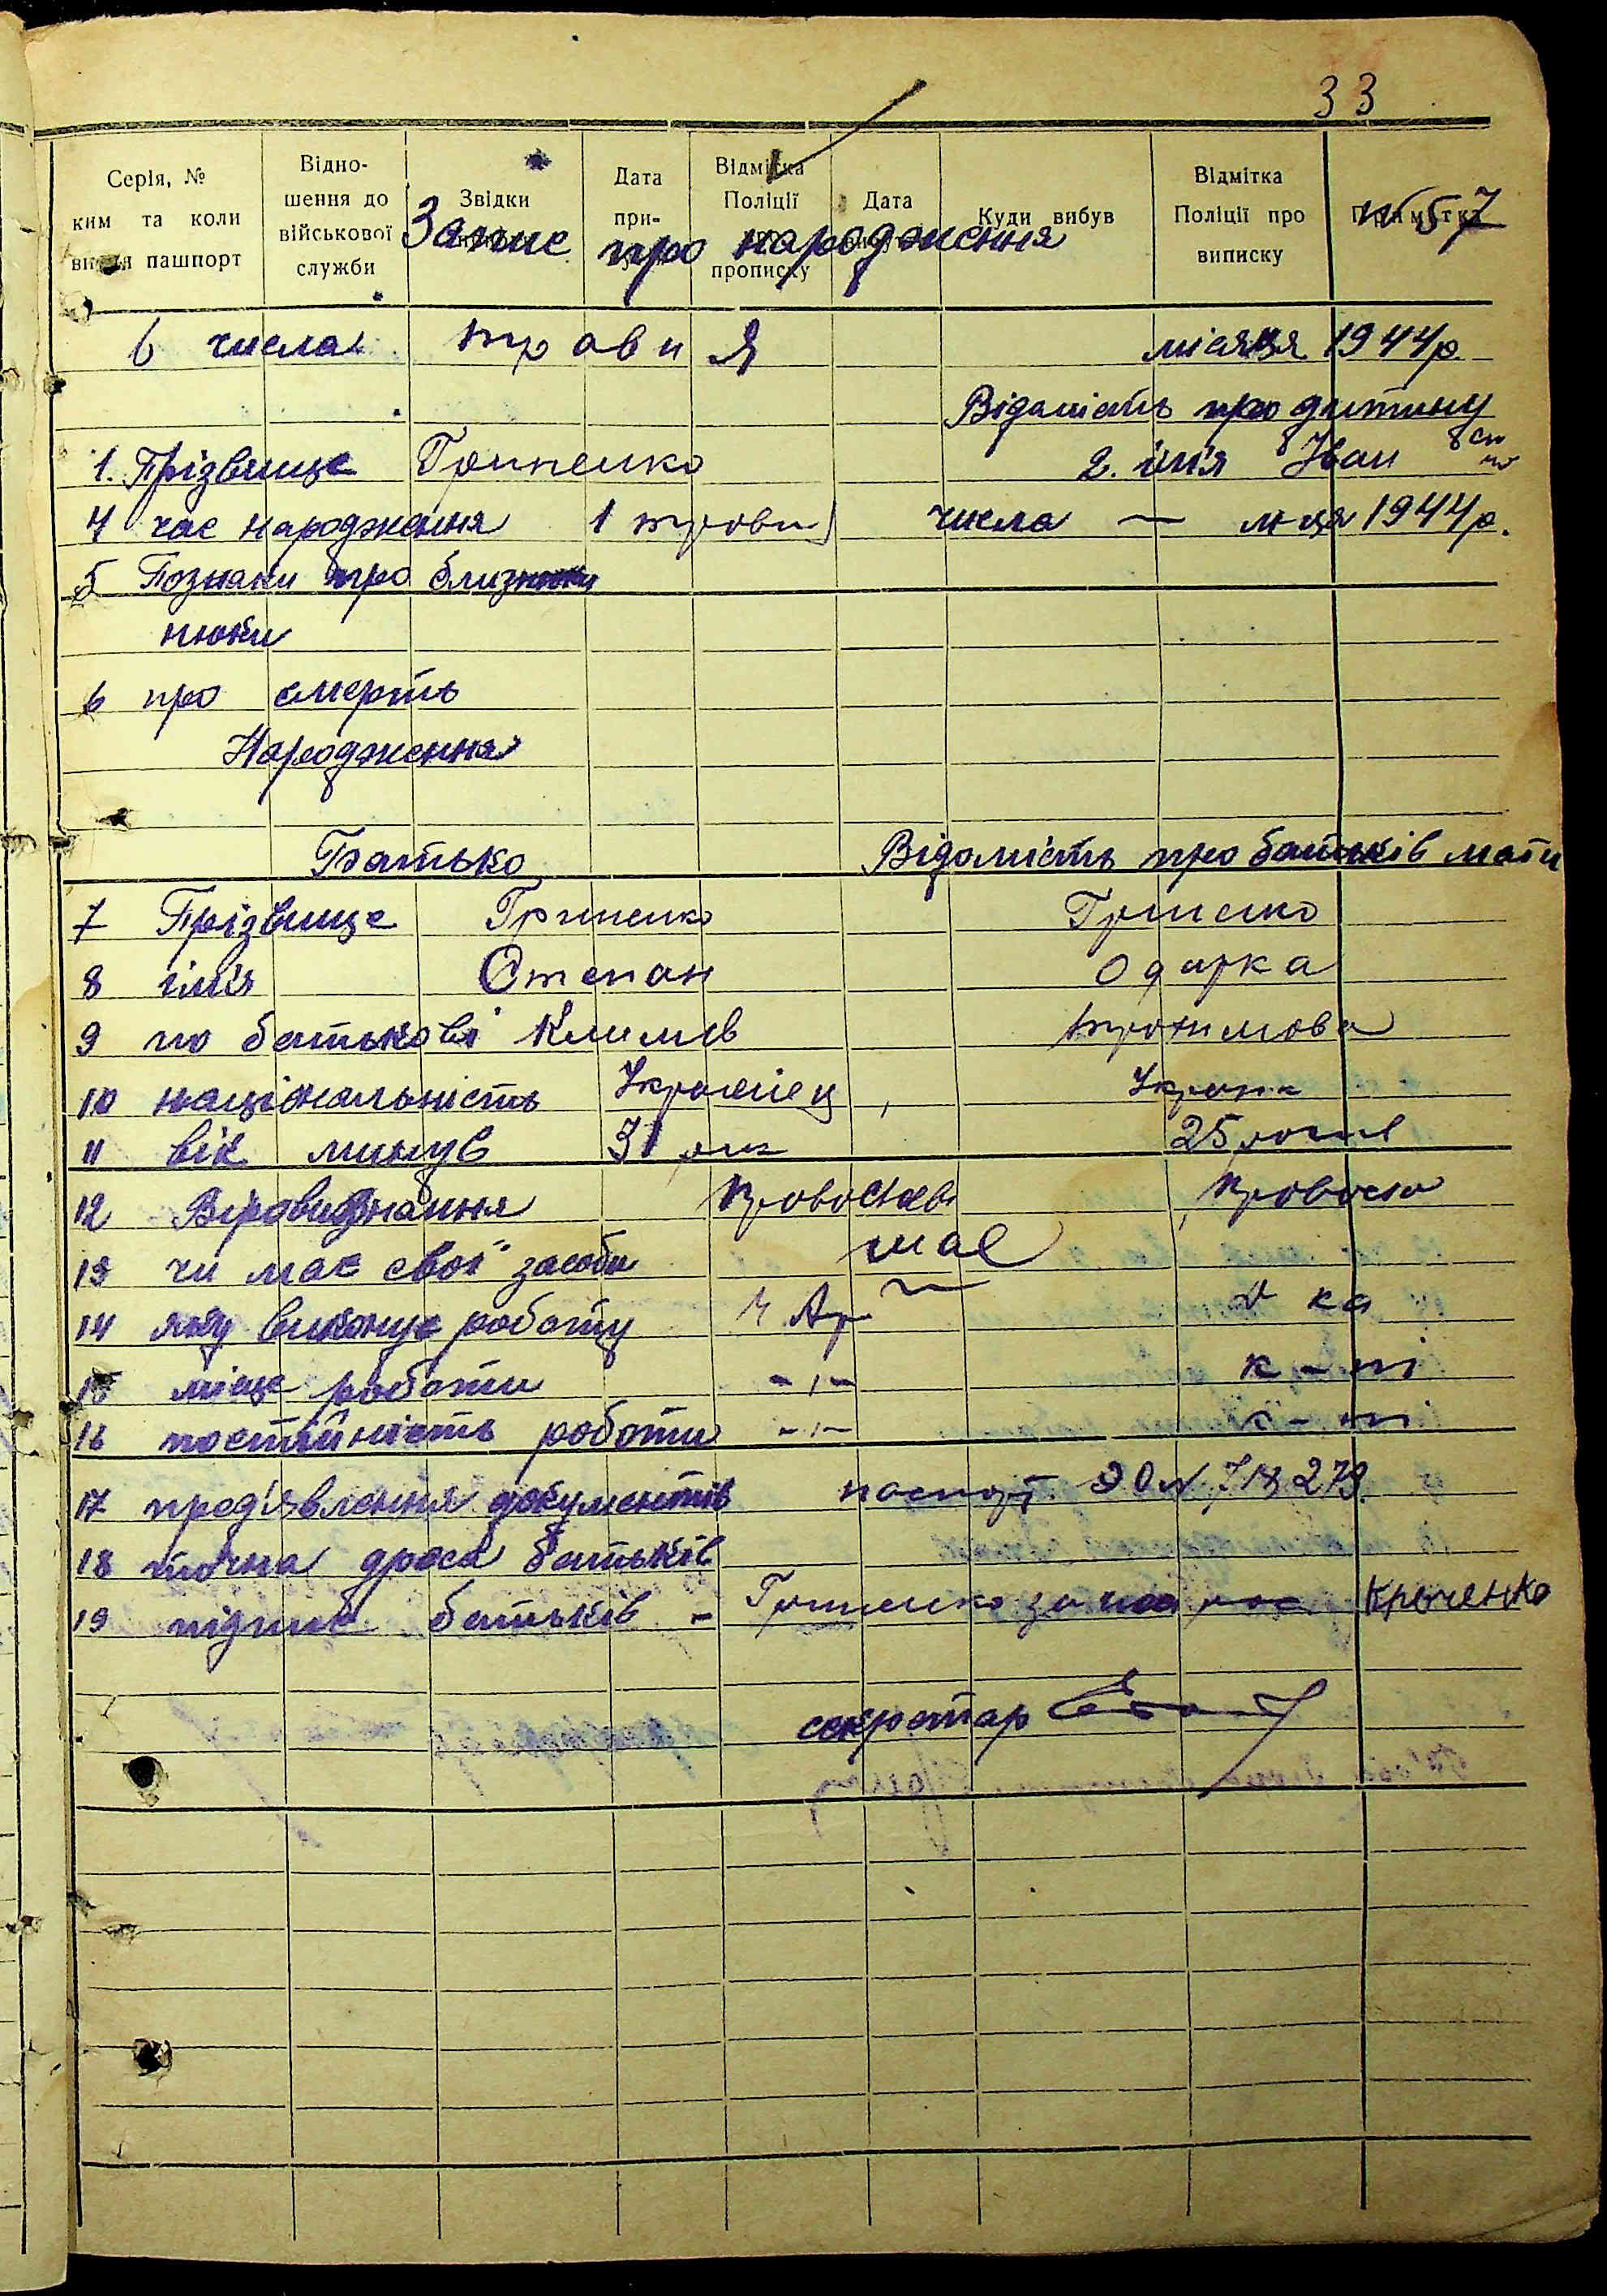 33
Серія, № ким та коли пашпорт
Відно-шення до військової служби
Звідки
Дата при-
Відмітка Поліції прописку
Дата
Куди вибув
Відмітка Поліції про виписку
Примітка
№ 57
Запис про народження
6 числа травня місяця 1944 р.
Відомість про дитину
1. Прізвище Гриненко 2. імя Іван
4 час народження 1 травня числа — м-ця 1944 р.
5 Познаки про близ
нюки
6 про смерть
Народження
Батько Відомість про батьків мати
7 Прізвище Гриненко Гриненко
8 імя Степан Одарка
9 по батькові Климов Трохимова
10 національність Українец Укранк
11 вік минув 31 рік 25 років
12 Віровизнання Православ Правосл
13 чи має свої засоби має
14 яку виконує роботу ка
15 місце роботи -ı- к-пі
16 постійність роботи -ı- к-пі
17 предʼявлення документів паспорт ЭО №
18 точна дреса батьків
19 підпис батьків - Гриненко Креченко
секретар